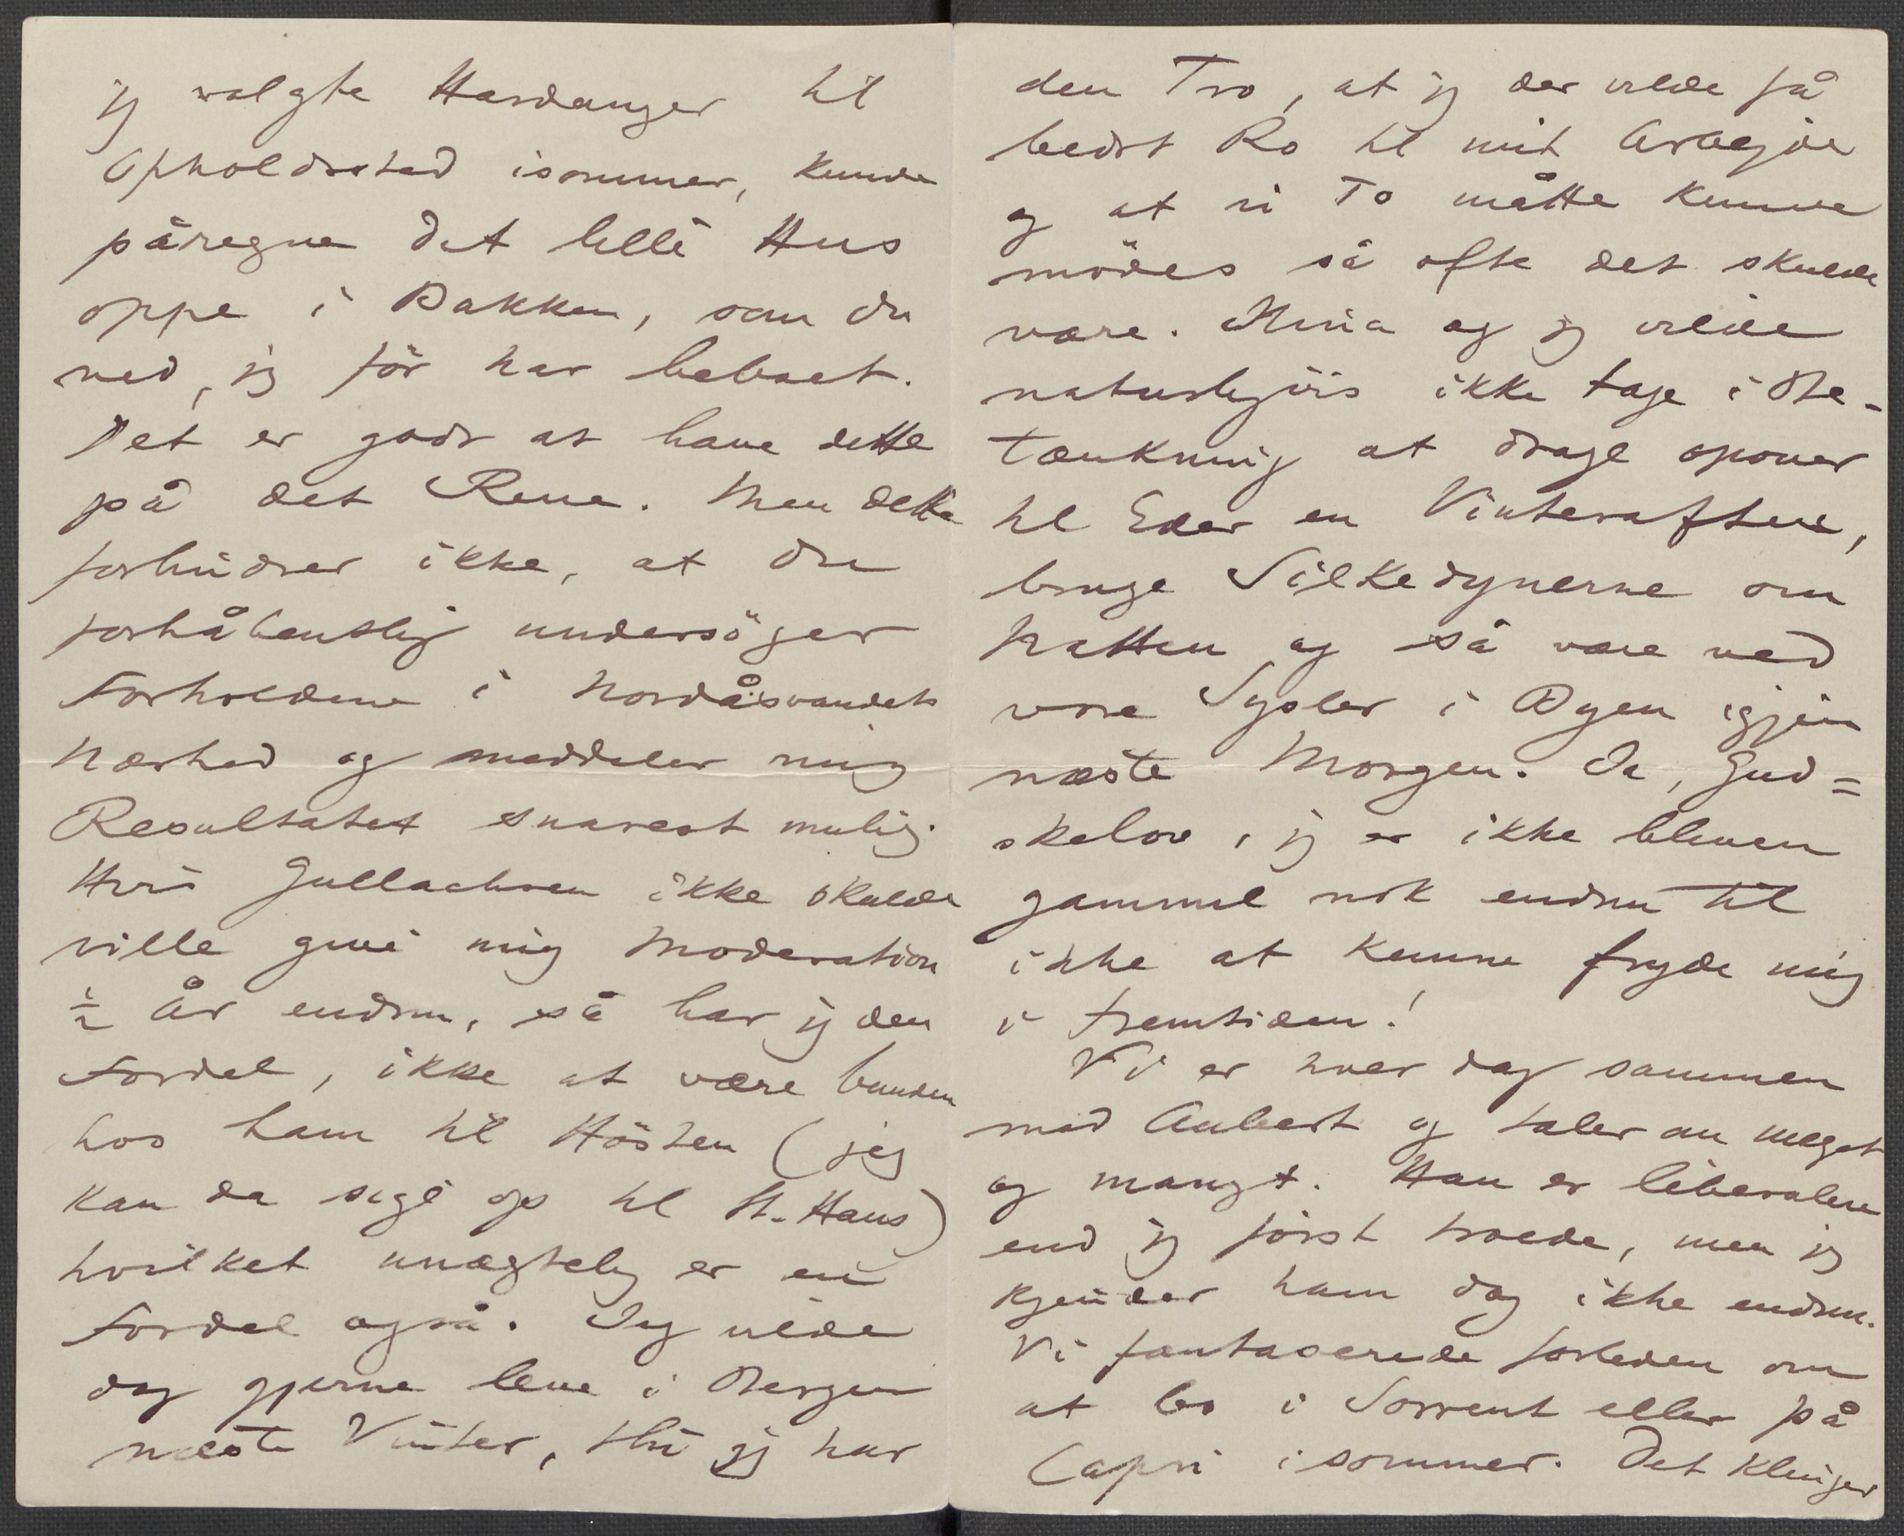 jeg valgte Hardanger til
Opholdssted isommer, kunde
påregne det lille Hus
oppe i Bakken, som du
ved, jeg før har beboet.
Det er godt at have dette
på det Rene. Men dette
forhindrer ikke, at du
forhåbentlig undersöger
Forholdene i Nordåsvandets
Nærhed og meddeler mig
Resultatet snarest mulig.
Hvis Gullachsen ikke skulde
ville give mig Moderation
½ År endnu, så har jeg den
Fordel, ikke at være bunden
hos ham til Hösten (jeg
kan da sige op til St. Hans)
hvilket unægtelig er en
Fordel også. Jeg vilde
dog gjerne leve i Bergen
næste Vinter, thi jeg har
den Tro, at jeg der vilde få
bedst Ro til mit Arbejde
og at vi To måtte kunne
mödes så ofte det skulde
være. Nina og jeg vilde
naturligvis ikke tage i Be-
tænkning at drage opover
til Eder en Vinteraften,
bruge Silkedynerne om
Natten og så være ved
vore Sysler i Byen igjen
næste Morgen. Ja, Gud=
skelov, jeg er ikke bleven
gammel nok endnu til
ikke at kunne fryde mig
i Fremtiden!
Vi er hver dag sammen
med Aubert og taler om meget
og mangt. Han er liberalere
end jeg först troede, men jeg
kjender ham dog ikke endnu.
Vi fantaserede forleden om
at bo i Sorrent eller på
Capri isommer. Det klinger